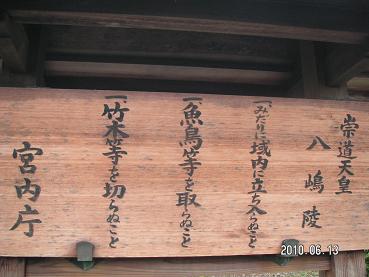 崇道天皇
八嶋陵
一みだりに域内に立ち入らぬこと
一魚鳥等を取らぬこと
一竹木等を切らぬこと
宮内庁
2010.06.13